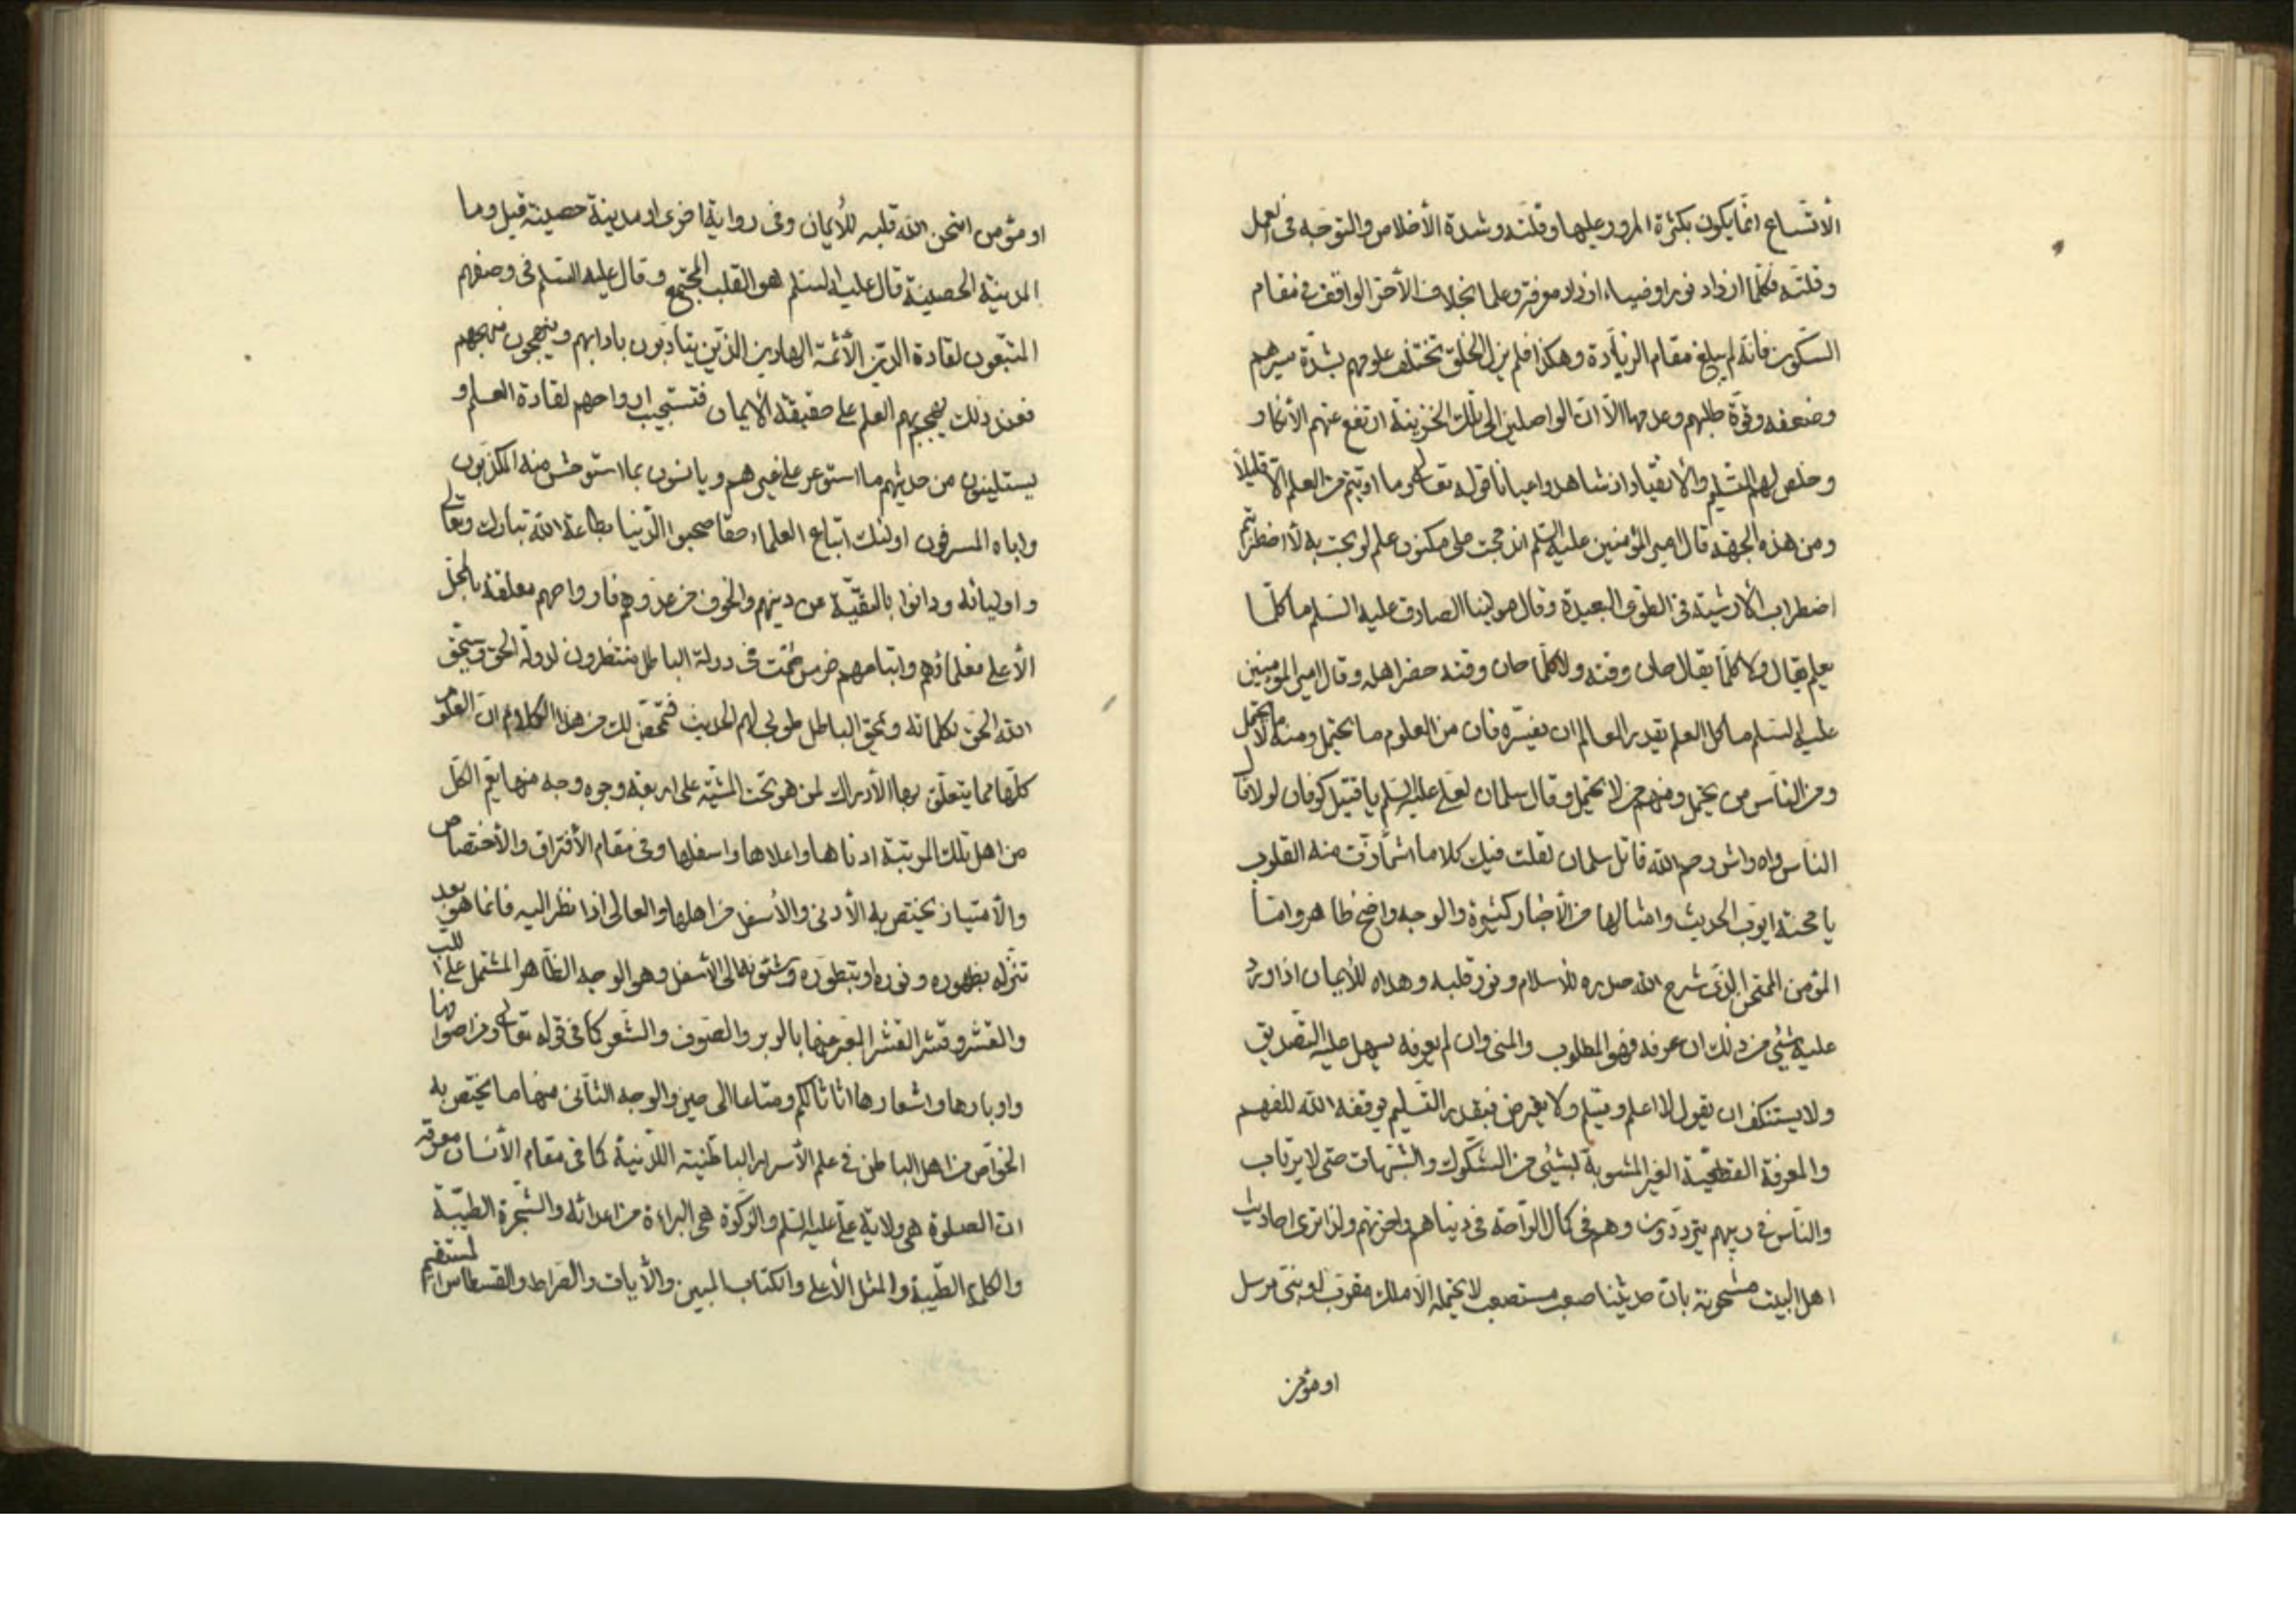 الأتساع انما يكون بكثرة المرور عليها وقلته وشدة الأخلاص والتوجه فى العمل
وقلته فكلما ازداد نورا وضياء ازداد معرفة وعلما بخلاف الأخر الواقف فى مقام
السكون فانه لم يبلغ مقام الزيادة وهكذا فلم يزل الخلق تختلف علومهم بشدة سيرهم
وضعفه وقوة طلبهم وعدمها الا ان الواصلين الى تلك الخزينة ارتفع عنهم الأنكار
وخلص لهم التسليم والأنقياد اذ شاهدوا عيانا قوله تعالى وما اوتيتم من العلم الا قليلا
ومن هذه الجهة قال امير المؤمنين عليه السلم اندمجت على مكنون علم لو بحت به لأ اضطربتم
اضطراب الأرشية فى الطوى البعيدة وقال مولينا الصادق عليه السلم ما كلما
يعلم يقال ولا كلما يقال حان وقته ولا كلما حان وقته حضر اهله وقال امير المؤمنين
عليه السلم ما كل العلم يقدر العالم ان يفسره فان من العلوم ما يحتمل ومنه ما لا يحتمل
ومن الناس من يحتمل ومنهم من لا يحتمل وقال سلمان لعلى عليه السلم يا قتيل كوفان لولا قال
الناس واه واش رحم الله قاتل سلمان لقلت فيك كلاما اشمأزت منه القلوب
يا محنة ايوب الحديث وامثالها من الأخبار كثيرة والوجه واضح ظاهر واما
المؤمن الممتحن الذى شرح الله صدره للأسلام ونور قلبه وهداه للأيمان اذا ورد
عليه شئ من ذلك ان عرفه فهو المطلوب والمنى وان لم يعرفه يسهل عليه التصديق
ولا يستنكف ان يقول لا اعلم ويسلم ولا يعترض فبقدر التسليم يوفقه الله للفهم
والمعرفة القطعية الغير المشوبة لبشئ من الشكوك والشبهات حتى لا يرتاب
والناس فى ريبهم يترددون وهم فى كمال الراحة فى دنياهم واخرتهم ولذا ترى احاديث
اهل البيت مشحونة بان حديثنا صعب مستصعب لا يحتمله الا ملك مقرب او نبى مرسل
او مؤمن
او مؤمن امتحن الله قلبه للأيمان وفى رواية اخرى او مدينة حصينة قيل وما
المدينة الحصينة قال عليه السلم هو القلب المجتمع وقال عليه السلم فى وصفهم
المتبعون لقادة الدين الأئمة الهادين الذين يتادبون بادابهم وينهجون نهجهم
فعند ذلك يهجم بهم العلم على حقيقة الأيمان فتستجيب ارواحهم لقادة العلم و
يستلينون من حديثهم ما استوعر على غيرهم ويانسون بما استوحش منه المكذبون
واباه المسرفون اولئك اتباع العلماء حقا صحبوا الدنيا بطاعة الله تبارك وتعالى
واوليائه ودانوا بالتقية عن دينهم والخوف من عدوهم فارواحهم معلقة بالمحل
الأعلى فعلماؤهم واتباعهم خرس صمت فى دولة الباطل منتظرون لدولة الحق وسيحق
الله الحق بكلماته ويمحق الباطل طوبى لهم الحديث فتمحض لك من هذا الكلام ان العلوم
كلها مما يتعلق بها الأدراك لمن هو تحت المشية على اربعة وجوه وجه منها يعم الكل
من اهل تلك المرتبة ادناها واعلاها واسفلها وفى مقام الأفتراق والأختصاص
والأمتياز يختص به الأدنى والأسفل من اهلها والعالى اذا نظر اليه فانما هو بعد
تنزله بظهوره ونوره او بتطوره وشئونه الى الأسفل وهو الوجه الظاهر المشتمل على اللب
والقشر وقشر القشر المعبر عنها بالوبر والصوف والشعر كما فى قوله تعالى ومن اصوافها
واوبارها واشعارها اثاثا لكم ومتاعا الى حين والوجه الثانى منها ما يختص به
الخواص من اهل الباطن فى علم الأسرار الباطنية اللدنية كما فى مقام الأنسان معرفة
ان الصلوة هى ولاية على عليه السلم والزكوة هى البراءة من اعدائه والشجرة الطيبة
والكلمة الطيبة والمثل الأعلى والكتاب المبين والأيات والصراط والقسطاس المستقيم